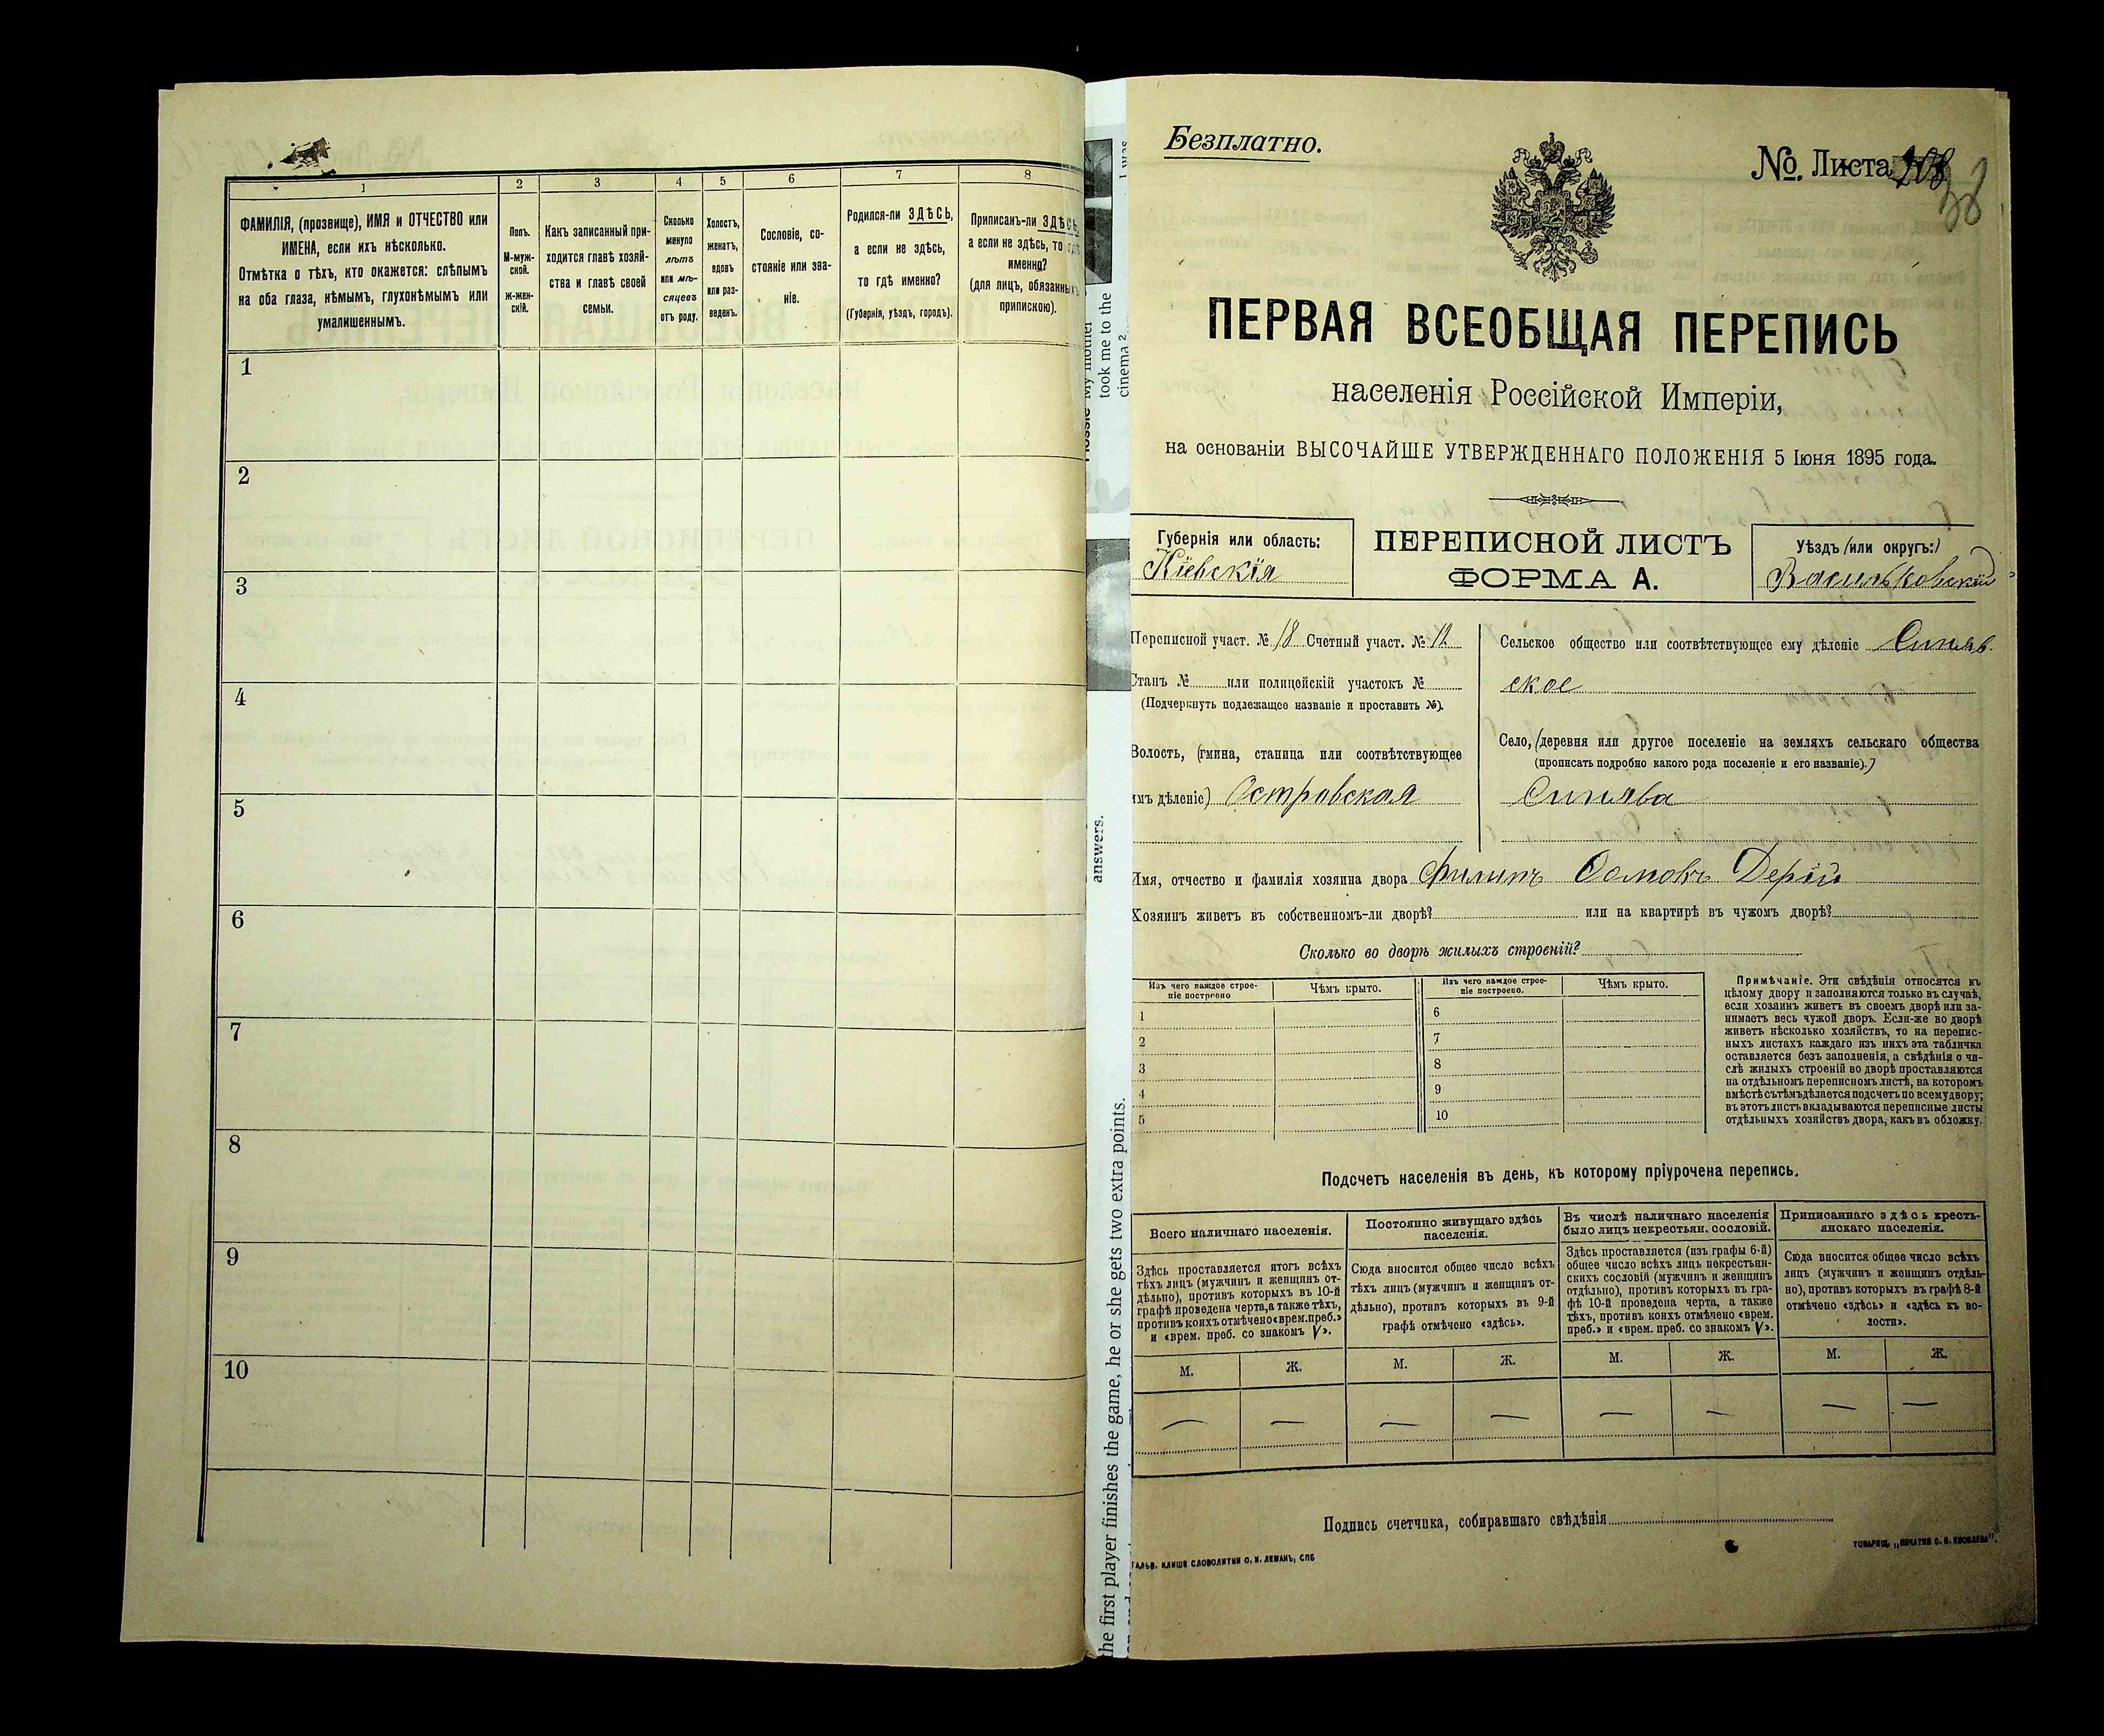 1
2
3
4
5
6
7
8
ФАМИЛІЯ, (прозвище), ИМЯ и ОТЧЕСТВО или
ИМЕНА, если ихъ нѣсколько.
Отмѣтка о тѣхъ, кто окажется: слѣпымъ
на оба глаза, нѣмымъ, глухонѣмымъ или
умалишеннымъ.
Полъ.
М-муж-
ской.
Ж-жен-
скій.
Какъ записанный при-
ходится главѣ хозяй-
ства и главѣ своей
семьи.
Сколько
минуло
лѣтъ
или мѣ-
сяцевъ
отъ роду.
Холостъ,
женатъ,
вдовъ
или раз-
веденъ.
Сословіе, со-
стояніе или зва-
ніе.
Родился-ли ЗДѢСЬ,
а если не здѣсь,
то гдѣ именно?
(Губернія, уѣздъ, городъ).
Приписанъ-ли ЗДѢСЬ,
а если не здѣсь, то гдѣ
именно?
(для лицъ, обязанныхъ
припискою).
1
2
3
4
5
6
7
8
9
10
took me to the
cinema 2
answers.
the first player finishes the game, he or she gets two extra points.
Безплатно.
№. Листа
ПЕРВАЯ ВСЕОБЩАЯ ПЕРЕПИСЬ
населенія Россійской Имперіи,
на основаніи ВЫСОЧАЙШЕ УТВЕРЖДЕННАГО ПОЛОЖЕНІЯ 5 Іюня 1895 года.
Губернія или область:
Кіевскія
ПЕРЕПИСНОЙ ЛИСТЪ
ФОРМА А.
Уѣздъ (или округъ:)
Васильковскій
Переписной участ. № 18 Счетный участ. № 12
Станъ № или полицейскій участокъ №
(Подчеркнуть подлежащее названіе и проставить №).
Волость, (гмина, станица или соотвѣтствующее
имъ дѣленіе) Островская
Сельское общество или соотвѣтствующее ему дѣленіе Синяв-
ское
Село, (деревня или другое поселеніе на земляхъ сельскаго общества
(прописать подробно какого рода поселеніе и его названіе).)
Синява
Имя, отчество и фамилія хозяина двора Филипъ Дерій
Хозяинъ живетъ въ собственномъ-ли дворѣ? или на квартирѣ въ чужомъ дворѣ?
Сколько во дворѣ жилыхъ строеній?
Изъ чего каждое строе-
ніе построено
Чѣмъ крыто.
Изъ чего каждое строе-
ніе построено.
Чѣмъ крыто.
1
2
3
4
5
6
7
8
9
10
Примѣчаніе. Эти свѣдѣнія относятся къ
цѣлому двору и заполняются только въ случаѣ,
если хозяинъ живетъ въ своемъ дворѣ или за-
нимаетъ весь чужой дворъ. Если-же во дворѣ
живетъ нѣсколько хозяйствъ, то на перепис-
ныхъ листахъ каждаго изъ нихъ эта табличка
оставляется безъ заполненія, а свѣдѣнія о чи-
слѣ жилыхъ строеній во дворѣ проставляются
на отдѣльномъ переписномъ листѣ, на которомъ
вмѣстѣ съ тѣмъ дѣлается подсчетъ по всему двору;
въ этотъ листъ вкладываются переписные листы
отдѣльныхъ хозяйствъ двора, какъ въ обложку.
Подсчетъ населенія въ день, къ которому пріурочена перепись.
Всего наличнаго населенія.
Постоянно живущаго здѣсь
населенія.
Въ числѣ наличнаго населенія
было лицъ некрестьян. сословій.
Приписаннаго здѣсь кресть-
янскаго населенія.
Здѣсь проставляется итогъ всѣхъ
тѣхъ лицъ (мужчинъ и женщинъ от-
дѣльно), противъ которыхъ въ 10-й
графѣ проведена черта, а также тѣхъ,
противъ коихъ отмѣчено «врем. преб.»
и «врем. преб. со знакомъ V».
Сюда вносится общее число всѣхъ
тѣхъ лицъ (мужчинъ и женщинъ от-
дѣльно), противъ которыхъ въ 9-й
графѣ отмѣчено «здѣсь».
Здѣсь проставляется (изъ графы 6-й)
общее число всѣхъ лицъ некрестьян-
скихъ сословій (мужчинъ и женщинъ
отдѣльно), противъ которыхъ въ гра-
фѣ 10-й проведена черта, а также
тѣхъ, противъ коихъ отмѣчено «врем.
преб.» и «врем. преб. со знакомъ V».
Сюда вносится общее число всѣхъ
лицъ (мужчинъ и женщинъ отдѣль-
но), противъ которыхъ въ графѣ 8-й
отмѣчено «здѣсь» и «здѣсь къ во-
лости».
М. Ж. М. Ж. М. Ж. М. Ж.
— — — — — — — —
Подпись счетчика, собиравшаго свѣдѣнія
ГАЛЬВ. КЛИШЕ СЛОВОЛИТНИ О. И. ЛЕМАНЪ, СПБ
ТОВАРИЩ. „ПЕЧАТНЯ С. П. ЯКОВЛЕВА“.